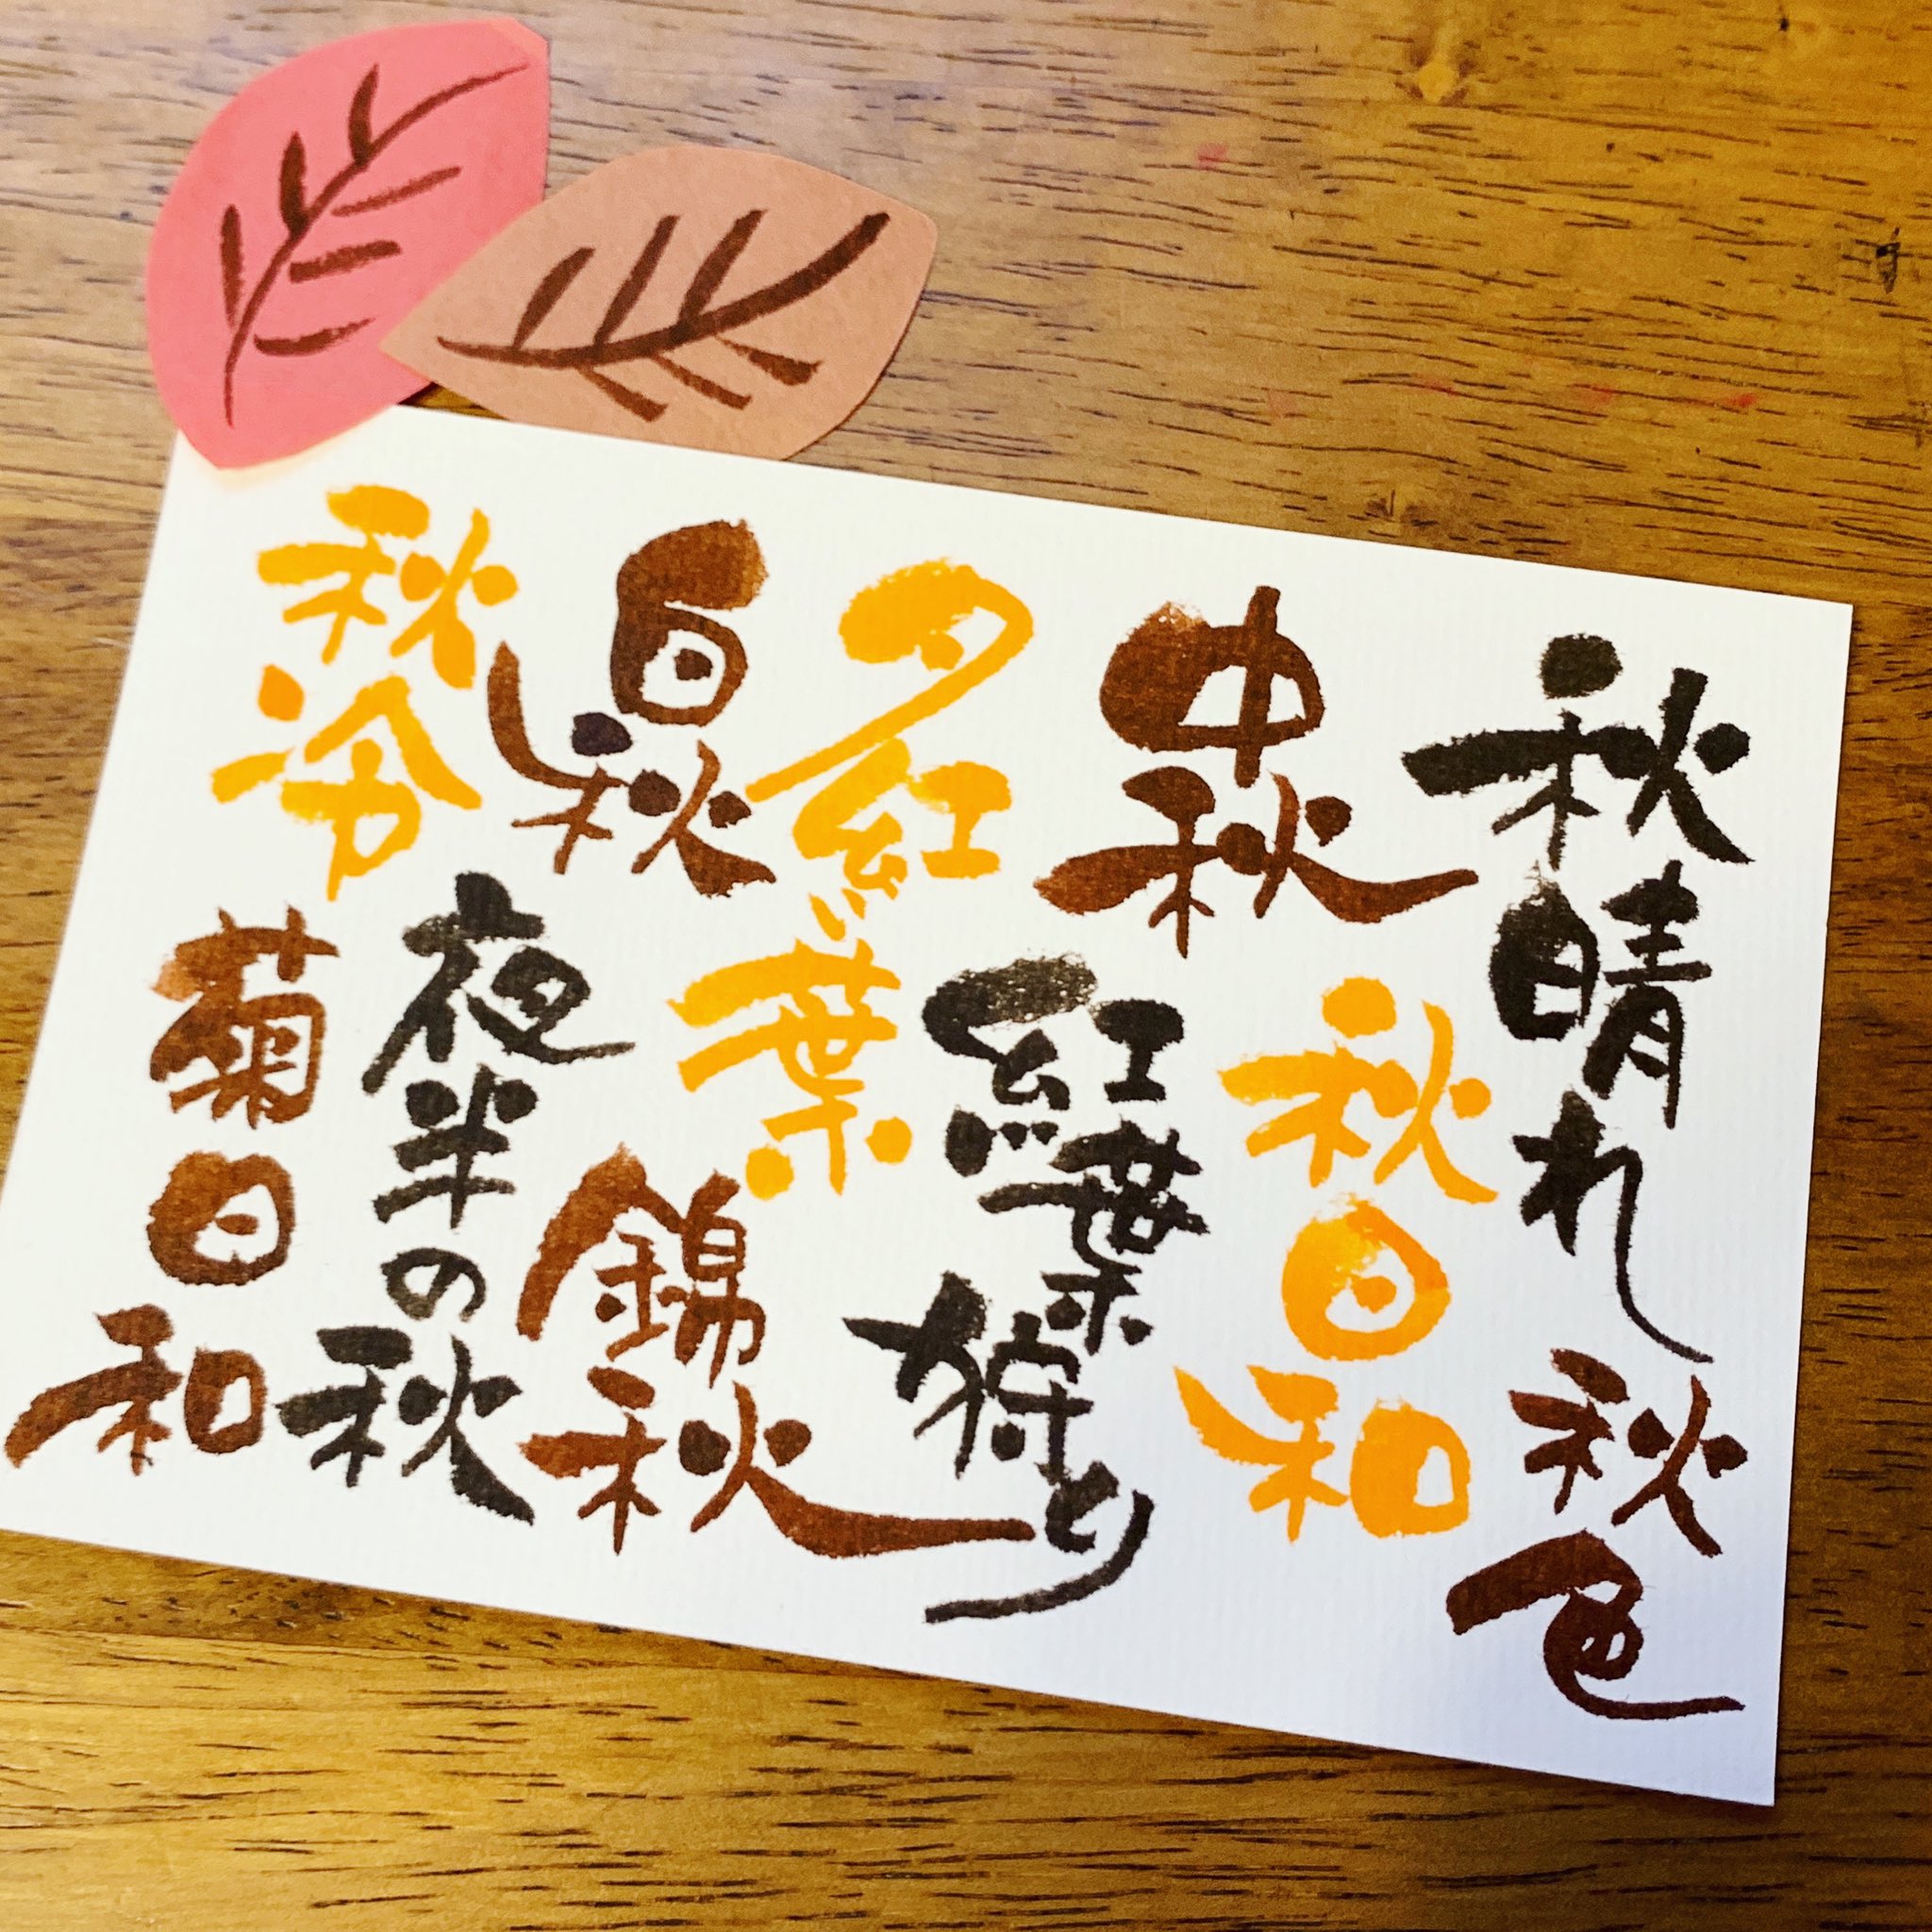 秋晴れ
秋色
中秋
秋日和
夕紅葉
紅葉狩り
白秋
錦秋
秋冷
夜半の秋
菊日和